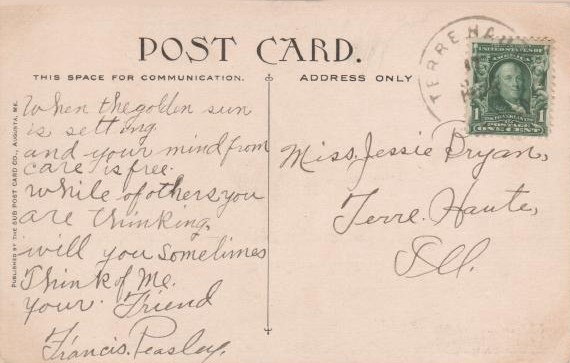 POST CARD.
THIS SPACE FOR COMMUNICATION.
ADDRESS ONLY
When the golden sun
is setting
and your mind from
care is free.
While of others you
are thinking,
will you sometimes
Think of Me.
your. Friend
Francis. Peasley.
Miss. Jessie Bryan,
Terre. Haute,
Ill.
TERRE HAU
UNITED STATES OF
AMERICA
FRANKLIN
1 POSTAGE 1
ONE CENT
PUBLISHED BY THE SUB POST CARD CO., AUGUSTA, ME.